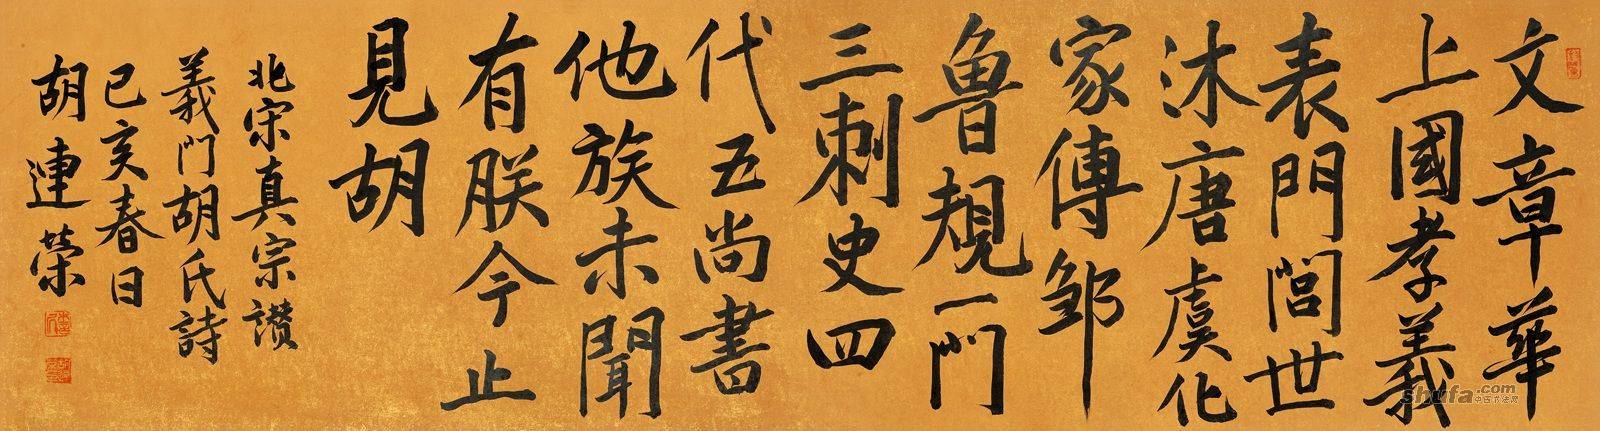 文章華
上國孝義
表門閭世
沐唐虞化
家傳鄒
魯規一門
三刺史四
代五尚書
他族未聞
有朕今止
見胡
北宋真宗讚
義門胡氏詩
己亥春日
胡連榮
shufa.com